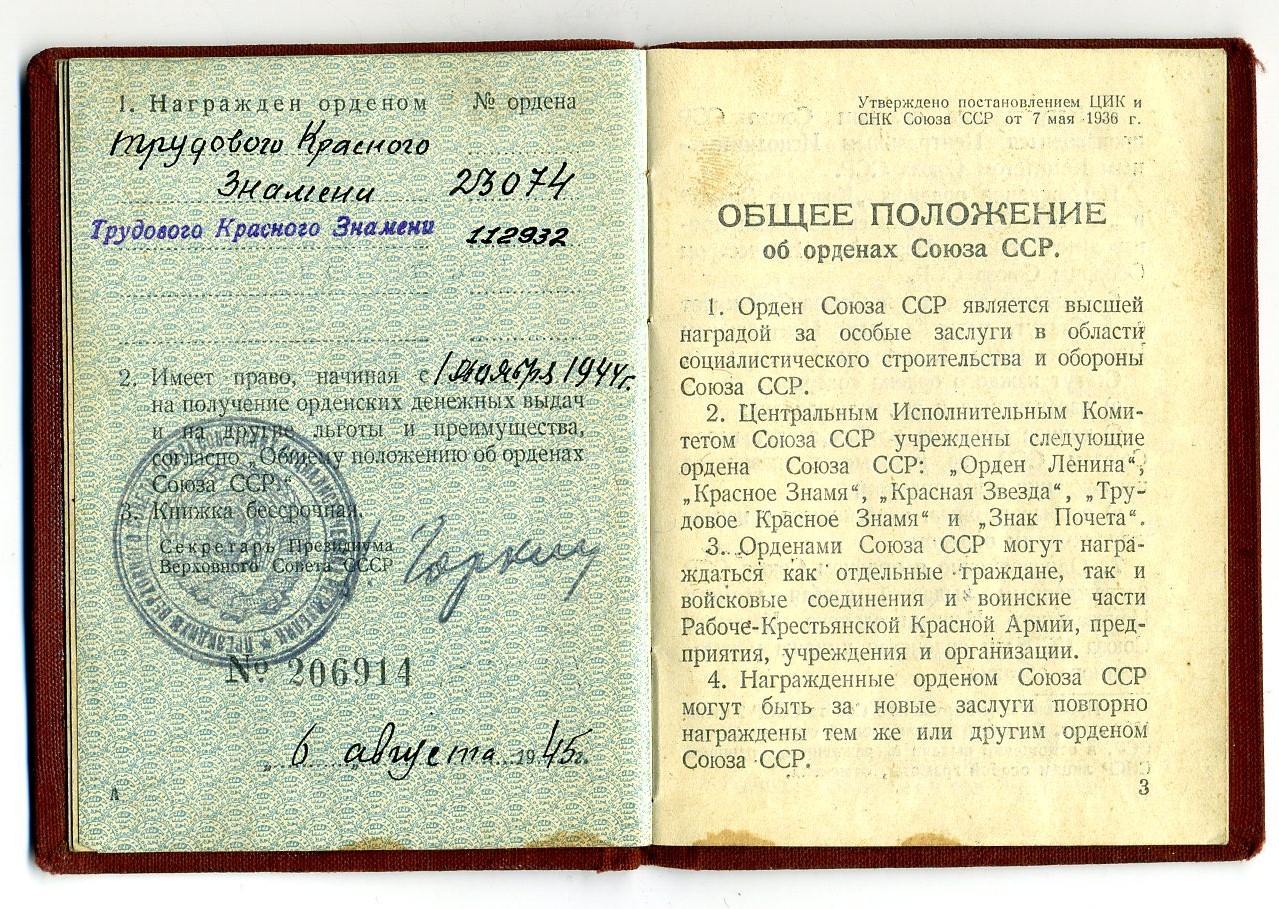 1. Награжден орденом № ордена
Трудового Красного
Знамени 23074
Трудового Красного Знамени 112932
2. Имеет право, начиная с 1 ноября 1944г.
на получение орденских денежных выдач
и на другие льготы и преимущества,
согласно „Общему положению об орденах
Союза ССР“
3. Книжка бессрочная.
Секретарь Президиума
Верховного Совета СССР
Горкин
№ 206914
„ 6 августа 1945г.
А
Утверждено постановлением ЦИК и
СНК Союза ССР от 7 мая 1936 г.
ОБЩЕЕ ПОЛОЖЕНИЕ
об орденах Союза ССР.
1. Орден Союза ССР является высшей
наградой за особые заслуги в области
социалистического строительства и обороны
Союза ССР.
2. Центральным Исполнительным Коми-
тетом Союза ССР учреждены следующие
ордена Союза ССР: „Орден Ленина“,
„Красное Знамя“, „Красная Звезда“, „Тру-
довое Красное Знамя“ и „Знак Почета“.
3. Орденами Союза ССР могут награ-
ждаться как отдельные граждане, так и
войсковые соединения и воинские части
Рабоче-Крестьянской Красной Армии, пред-
приятия, учреждения и организации.
4. Награжденные орденом Союза ССР
могут быть за новые заслуги повторно
награждены тем же или другим орденом
Союза ССР.
3